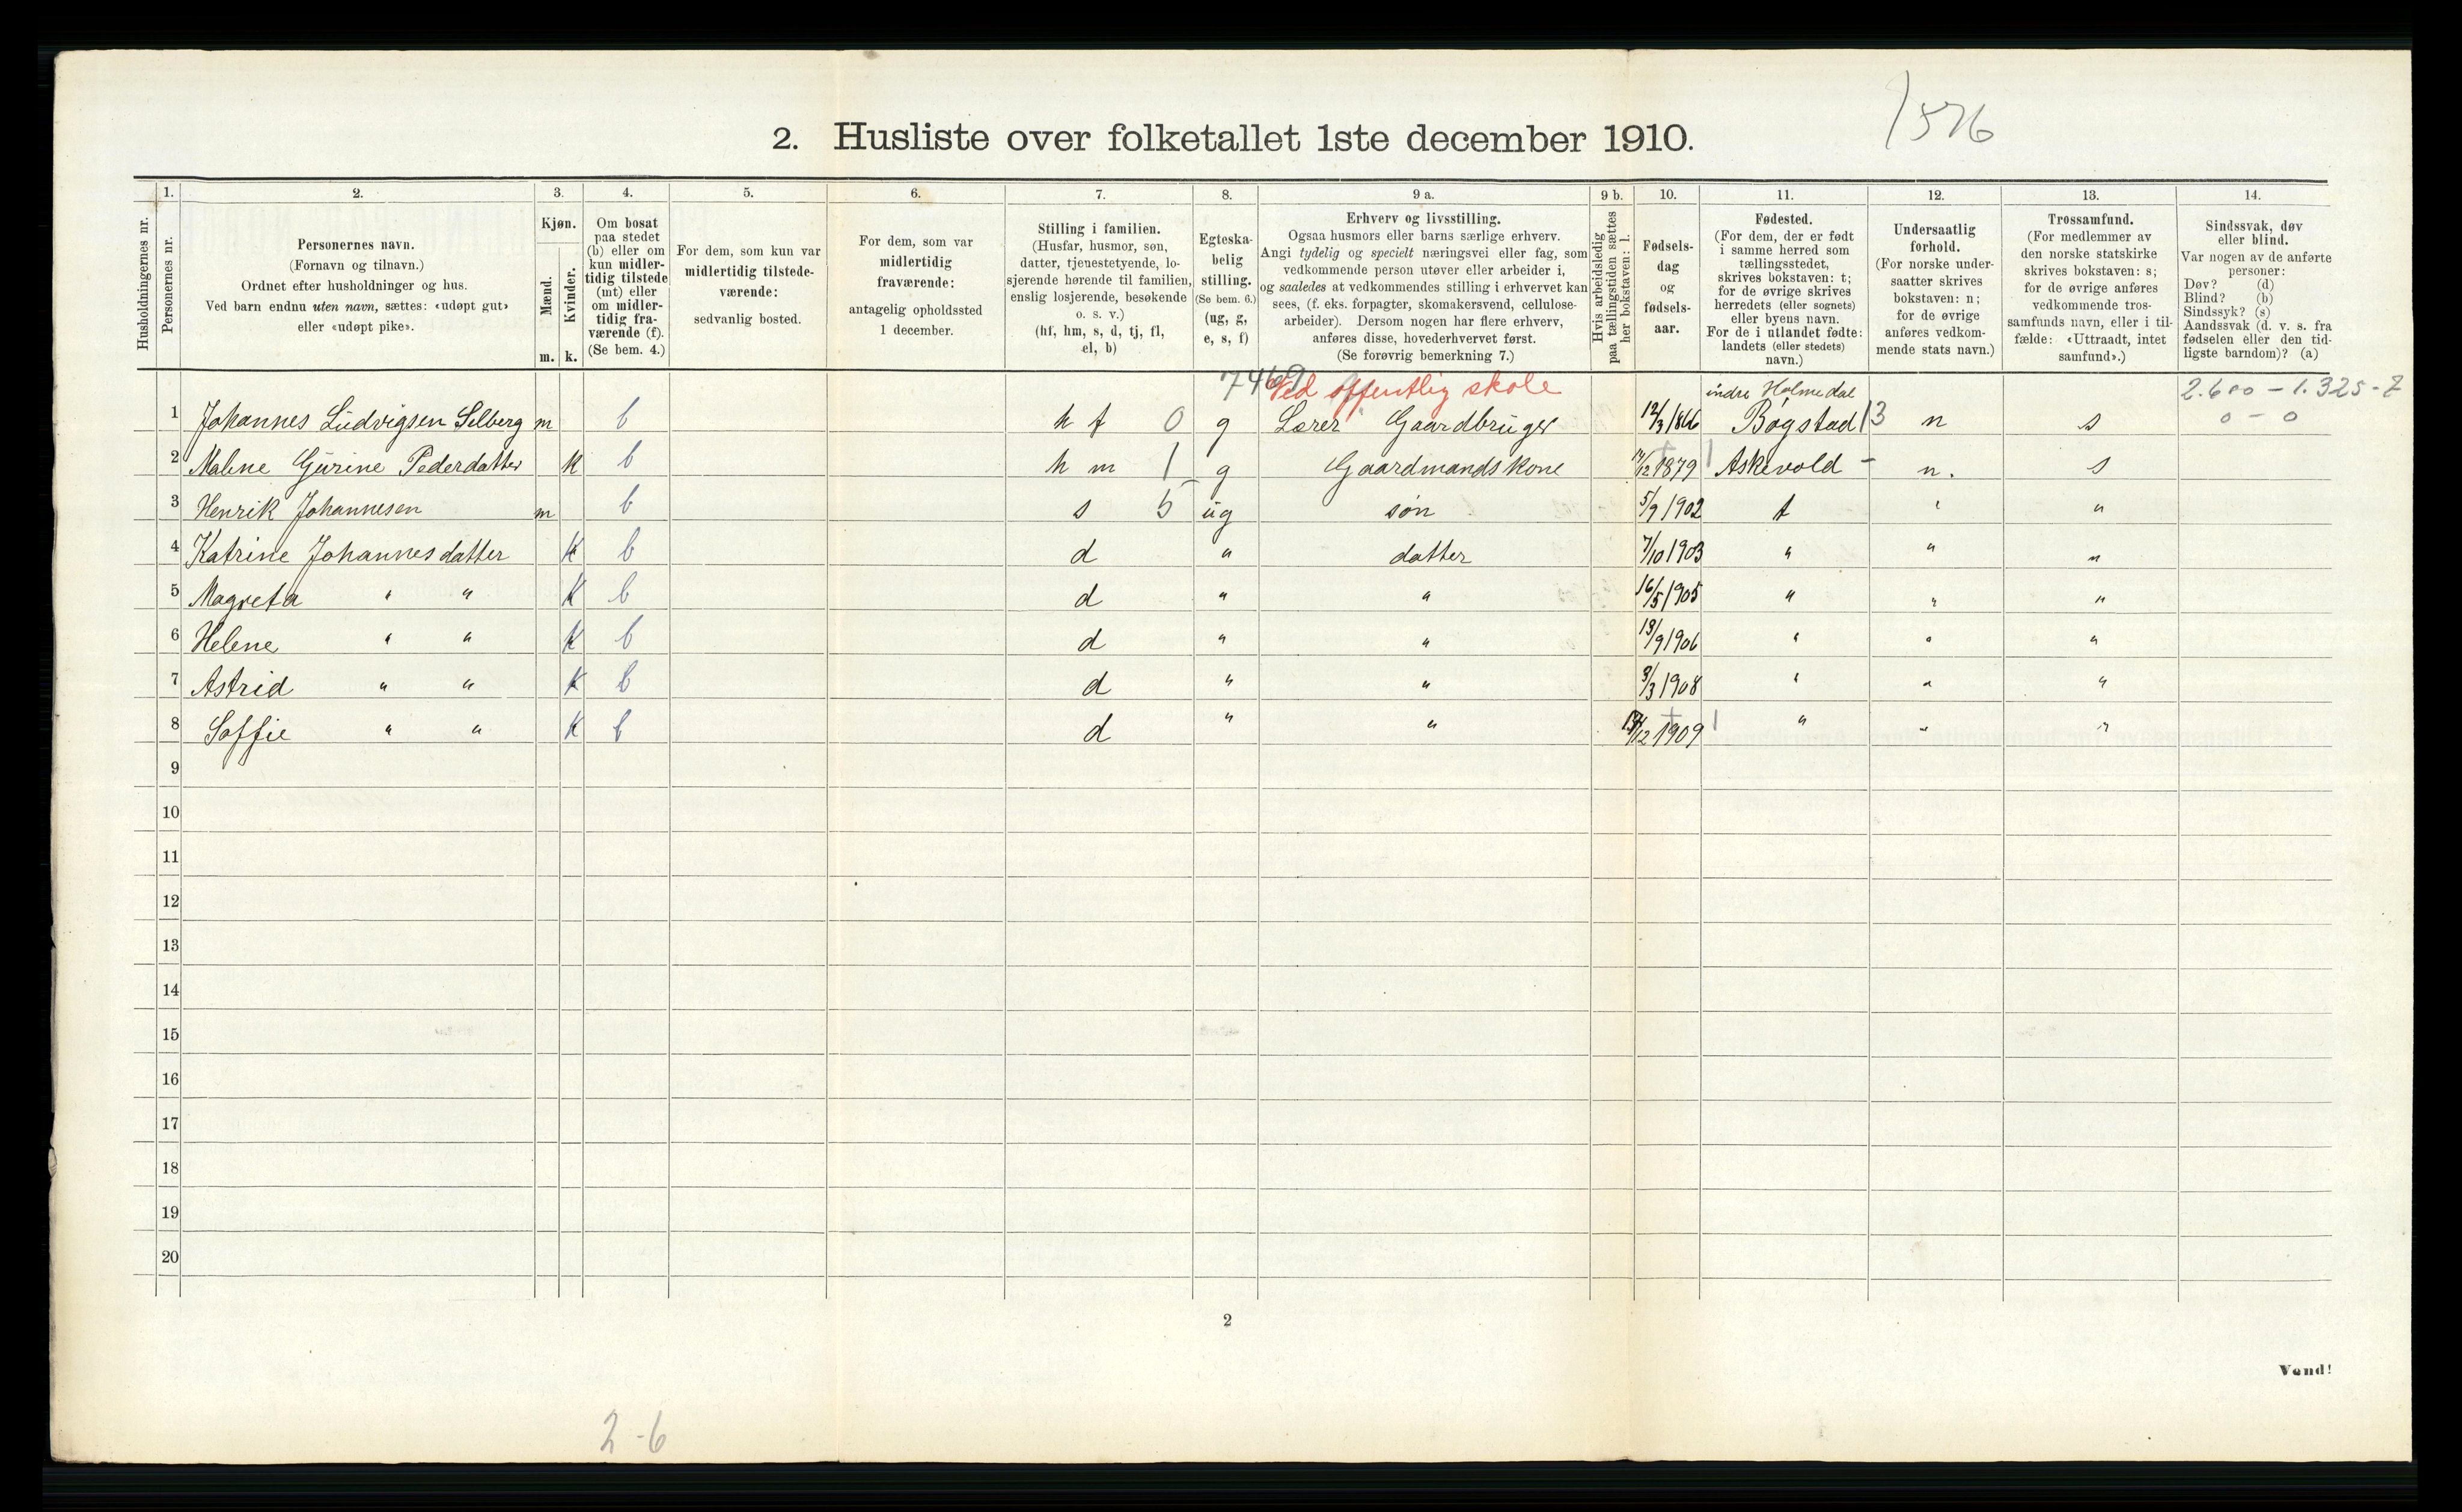 1576
2. Husliste over folketallet 1ste december 1910.
Husholdningernes nr.
1.
Personernes nr.
2.
Personernes navn.
(Fornavn og tilnavn.)
Ordnet efter husholdninger og hus.
Ved barn endnu uten navn, sættes: «udøpt gut»
eller «udøpt pike».
3.
Kjøn.
Mænd.
Kvinder.
m. k.
4.
Om bosat
paa stedet
(b) eller om
kun midler-
tidig tilstede
(mt) eller
om midler-
tidig fra-
værende (f).
(Se bem. 4.)
5.
For dem, som kun var
midlertidig tilstede-
værende:
sedvanlig bosted.
6.
For dem, som var
midlertidig
fraværende:
antagelig opholdssted
1 december.
7.
Stilling i familien.
(Husfar, husmor, søn,
datter, tjenestetyende, lo-
sjerende hørende til familien,
enslig losjerende, besøkende
o. s. v.)
(hf, hm, s, d, tj, fl,
el, b)
8.
Egteska-
belig
stilling.
(Se bem. 6.)
(ug, g,
e, s, f)
9 a.
Erhverv og livsstilling.
Ogsaa husmors eller barns særlige erhverv.
Angi tydelig og specielt næringsvei eller fag, som
vedkommende person utøver eller arbeider i,
og saaledes at vedkommendes stilling i erhvervet kan
sees, (f. eks. forpagter, skomakersvend, cellulose-
arbeider). Dersom nogen har flere erhverv,
anføres disse, hovederhvervet først.
(Se forøvrig bemerkning 7.)
9 b.
Hvis arbeidsledig
paa tællingstiden sættes
her bokstaven: l.
10.
Fødsels-
dag
og
fødsels-
aar.
11.
Fødested.
(For dem, der er født
i samme herred som
tællingsstedet,
skrives bokstaven: t;
for de øvrige skrives
herredets (eller sognets)
eller byens navn.
For de i utlandet fødte:
landets (eller stedets)
navn.)
12.
Undersaatlig
forhold.
(For norske under-
saatter skrives
bokstaven: n;
for de øvrige
anføres vedkom-
mende stats navn.)
13.
Trossamfund.
(For medlemmer av
den norske statskirke
skrives bokstaven: s;
for de øvrige anføres
vedkommende tros-
samfunds navn, eller i til-
fælde: «Uttraadt, intet
samfund».)
14.
Sindssvak, døv
eller blind.
Var nogen av de anførte
personer:
Døv? (d)
Blind? (b)
Sindssyk? (s)
Aandssvak (d. v. s. fra
fødselen eller den tid-
ligste barndom)? (a)
7469 Ved offentlig skole indre Holmedal 2.600 - 1.325 - 2
1 Johannes Ludvigsen Selberg m b h f 0 g Lærer Gaardbruger 12/3 1866 Bygstad 13 n s 0 - 0
2 Malene Gurine Pederdatter k b h m 1 g Gaardmandskone 12/12 1879 Askevold - n. s
3 Henrik Johannesen m b s 5 ug søn 5/9 1902 t " "
4 Katrine Johannesdatter k b d " datter 7/10 1903 " " "
5 Magreta " " k b d " " 16/5 1905 " " "
6 Helene " " k b d " " 13/9 1906 " " "
7 Astrid " " k b d " " 3/3 1908 " " "
8 Soffie " " k b d " " /12 1909 " " "
9
10
11
12
13
14
15
16
17
18
19
20
2
Vend!
2-6